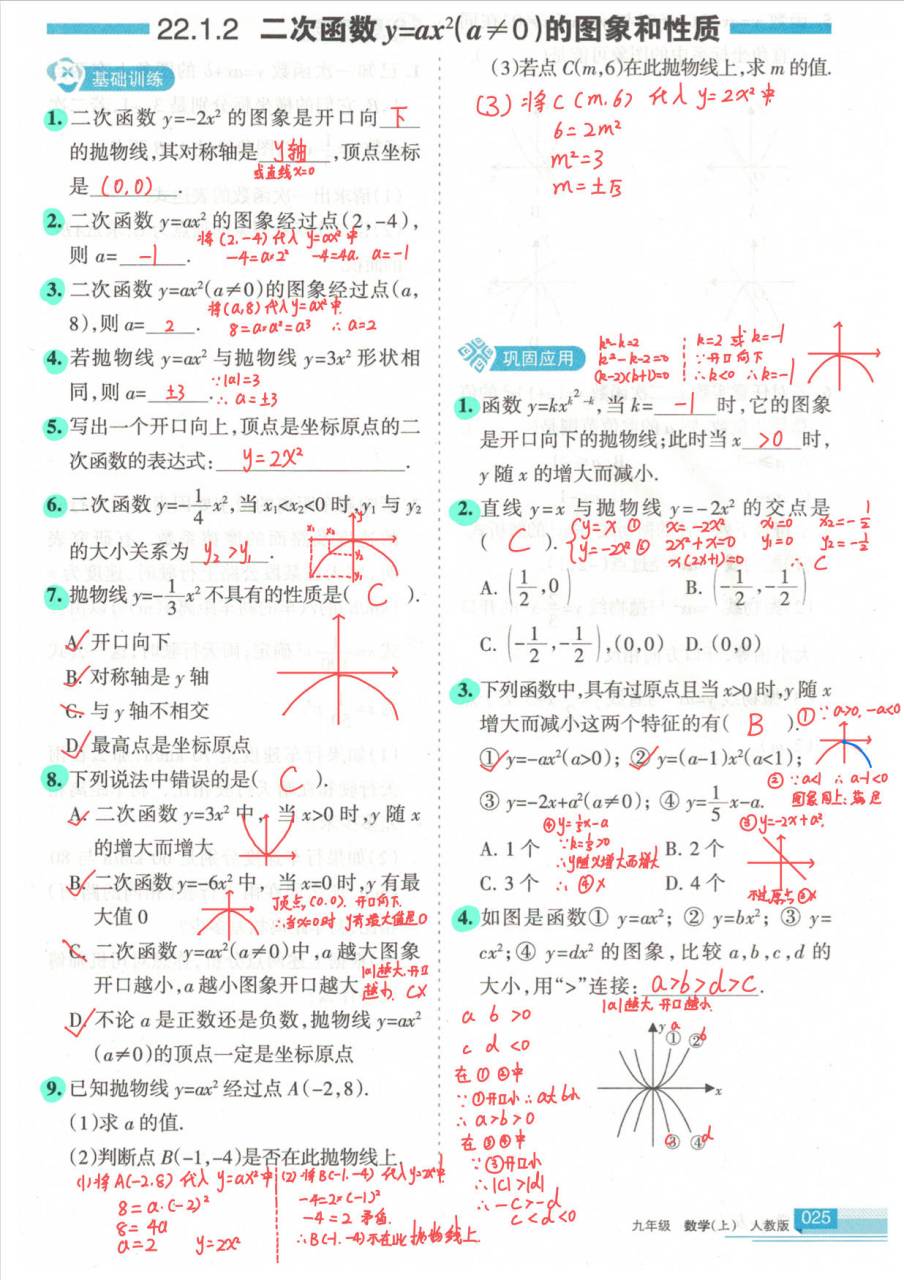 22.1.2 二次函数 y=ax²(a≠0)的图象和性质
基础训练
1. 二次函数 y=-2x² 的图象是开口向 下
的抛物线,其对称轴是 y轴 ,顶点坐标
或直线x=0
是 (0,0) .
2. 二次函数 y=ax² 的图象经过点(2,-4),
将(2,-4)代入y=ax²中
则 a= -1 . -4=a×2² -4=4a. a=-1
3. 二次函数 y=ax²(a≠0)的图象经过点(a,
将(a,8)代入y=ax²中.
8),则 a= 2 . 8=a×a²=a³ ∴a=2
4. 若抛物线 y=ax² 与抛物线 y=3x² 形状相
同,则 a= ±3 . ∵|a|=3
∴a=±3
5. 写出一个开口向上,顶点是坐标原点的二
次函数的表达式: y=2x² .
6. 二次函数 y=-1/4x²,当 x₁<x₂<0 时,y₁ 与 y₂
的大小关系为 y₂>y₁ .
x₁ x₂ y
y₂
y₁
7. 抛物线 y=-1/3x² 不具有的性质是( C ).
A. 开口向下
B. 对称轴是 y 轴
C. 与 y 轴不相交
D. 最高点是坐标原点
8. 下列说法中错误的是( C ).
A. 二次函数 y=3x² 中, 当 x>0 时,y 随 x
的增大而增大
B. 二次函数 y=-6x² 中, 当 x=0 时,y 有最
大值 0
顶点(0,0). 开口向下
∴当x=0时 y有最大值是0
C. 二次函数 y=ax²(a≠0)中,a 越大图象
开口越小,a 越小图象开口越大
|a|越大,开口
越小. C×
D. 不论 a 是正数还是负数,抛物线 y=ax²
(a≠0)的顶点一定是坐标原点
9. 已知抛物线 y=ax² 经过点 A(-2,8).
(1)求 a 的值.
(2)判断点 B(-1,-4)是否在此抛物线上.
(1)将A(-2,8)代入y=ax²中
8=a·(-2)²
8=4a
a=2 y=2x²
(2)将B(-1,-4)代入y=2x²中
-4=2×(-1)²
-4=2 矛盾.
∴B(-1,-4)不在此抛物线上.
(3)若点 C(m,6)在此抛物线上,求 m 的值.
(3)将C(m,6)代入y=2x²中
6=2m²
m²=3
m=±√3
巩固应用
k²-k=2
k²-k-2=0
(k-2)(k+1)=0
k=2 或 k=-1
∵开口向下
∴k<0 ∴k=-1
1. 函数 y=kx^(k²-k),当 k= -1 时,它的图象
是开口向下的抛物线;此时当 x >0 时,
y 随 x 的增大而减小.
2. 直线 y=x 与抛物线 y=-2x² 的交点是
( C ).
y=x ① x=-2x² x₁=0 x₂=-1/2
y=-2x² ② 2x²+x=0 y₁=0 y₂=-1/2
x(2x+1)=0 ∴C
A. (1/2,0) B. (-1/2,-1/2)
C. (-1/2,-1/2),(0,0) D. (0,0)
3. 下列函数中,具有过原点且当 x>0 时,y 随 x
增大而减小这两个特征的有( B ).
①∵a>0,-a<0
① y=-ax²(a>0); ② y=(a-1)x²(a<1);
②∵a<1 ∴a-1<0
图象同上:满足
③ y=-2x+a²(a≠0); ④ y=1/5x-a.
④y=1/5x-a
∵k=1/5>0
∴y随x增大而增大
∴④×
③y=-2x+a².
不过原点 ③×
A. 1 个 B. 2 个
C. 3 个 D. 4 个
4. 如图是函数① y=ax²; ② y=bx²; ③ y=
cx²;④ y=dx² 的图象,比较 a,b,c,d 的
大小,用“>”连接: a>b>d>c .
|a|越大,开口越小
a b >0
c d <0
在①②中
∵①开口小 ∴a大b小
∴a>b>0
在③④中
∵③开口小
∴|c|>|d|
∴-c>-d
c<d<0
y a
① ② b
x
c ③ ④ d
九年级 数学(上) 人教版 025